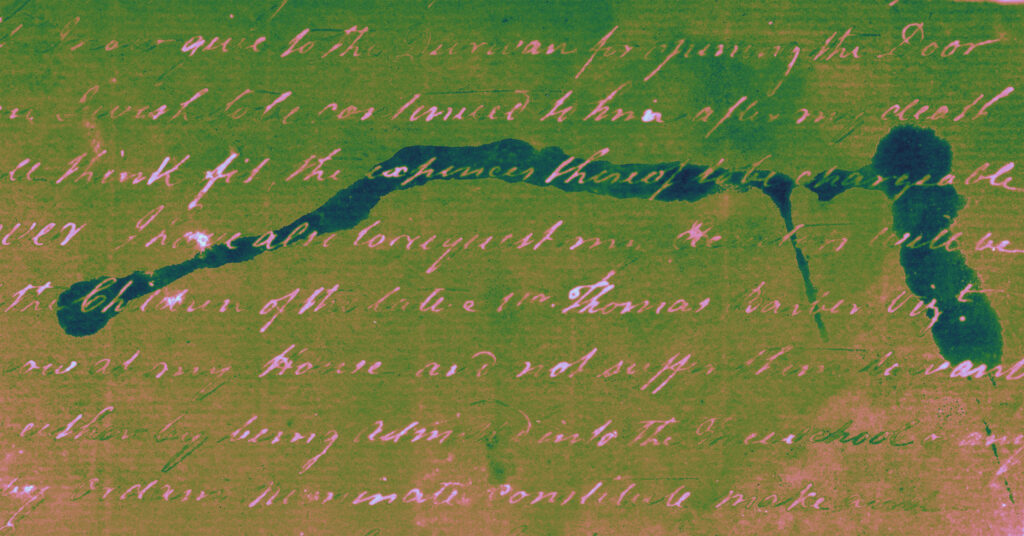 I now give to the Durwan for opening the Door
I wish to be continued to him after my death
think fit, the expences thereof to be chargeable
I have also to request my Executors will be
the Children of the late Mr. Thomas Vizt.
at my House and not suffer them to want
either by being admitted into the Free school or any
ordain nominate constitute make